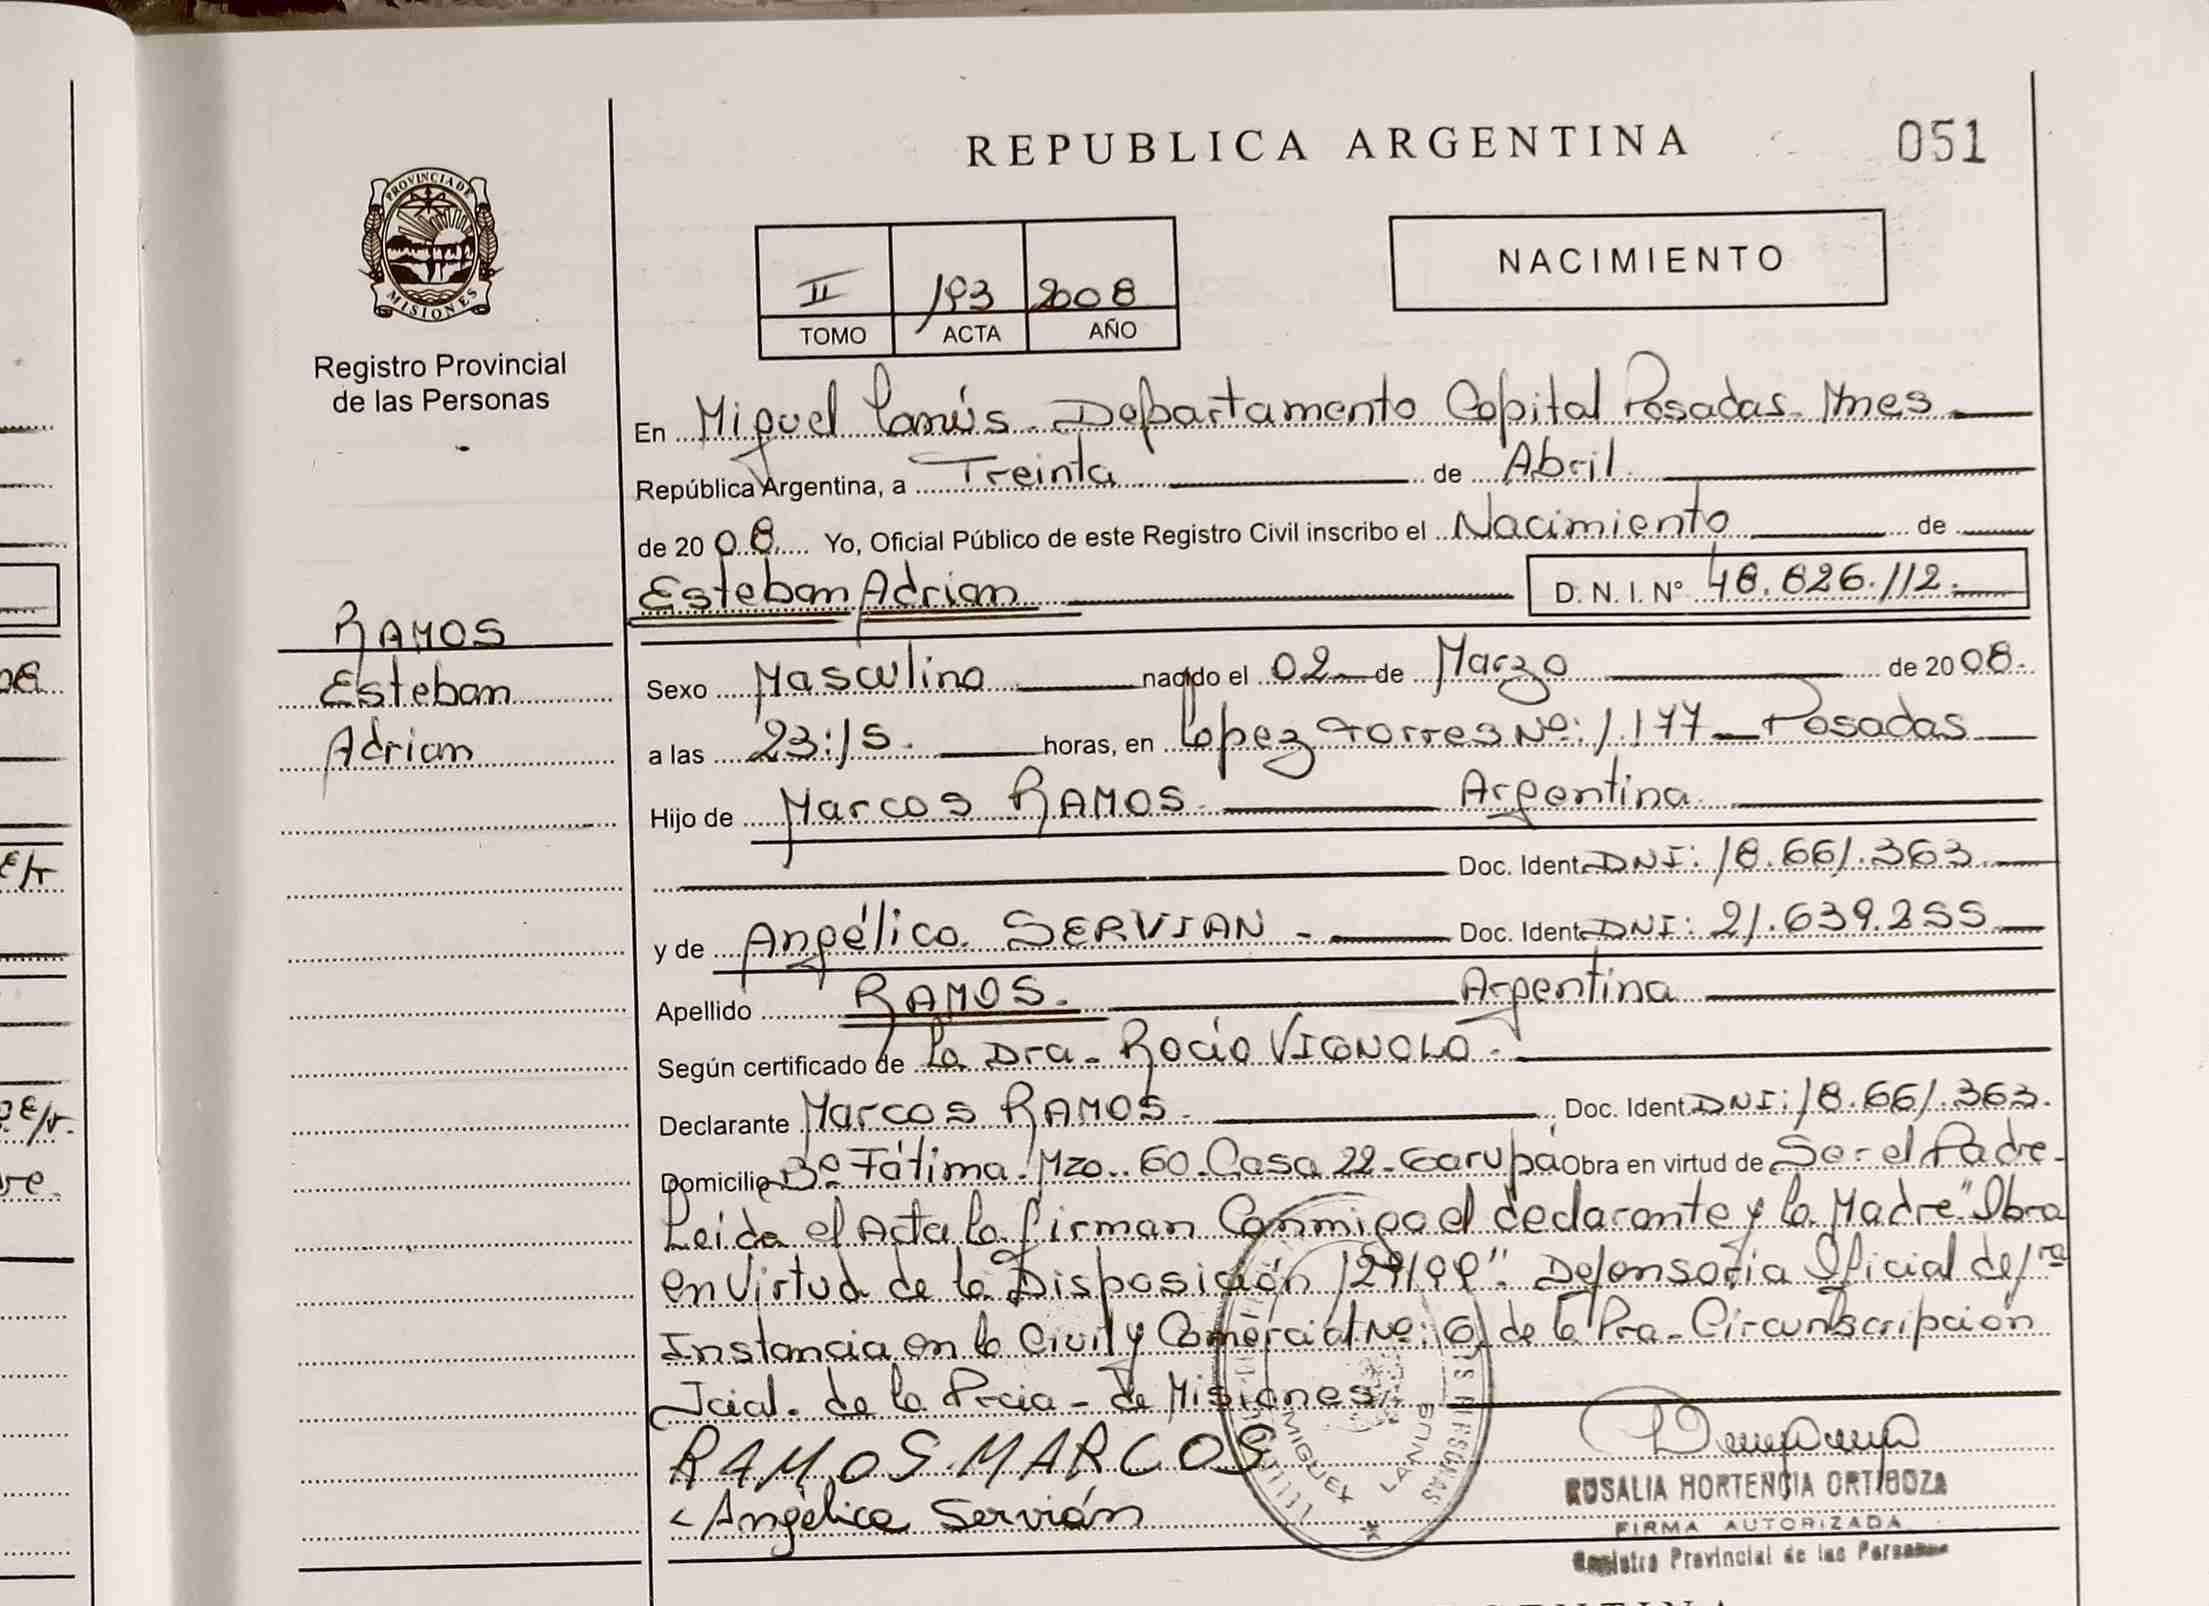 REPUBLICA ARGENTINA
051
PROVINCIA DE
MISIONES
Registro Provincial
de las Personas
NACIMIENTO
II 193 2008
TOMO ACTA AÑO
En Miguel Lanús. Departamento Capital Posadas. Mnes
República Argentina, a Treinta de Abril.
de 20 08. Yo, Oficial Público de este Registro Civil inscribo el Nacimiento de
Esteban Adrian D. N. I. N° 48.626.112.
RAMOS
Esteban
Adrian
Sexo Masculino nacido el 02 de Marzo de 20 08.
a las 23:15. horas, en Lopez Torres Nº: 1.177 - Posadas
Hijo de Marcos RAMOS. Argentina
Doc. Ident. DNI: 18.661.363
y de Angélica SERVIAN - Doc. Ident. DNI: 21.639.255
Apellido RAMOS. Argentina
Según certificado de La Dra. Rocío VIGNOLO.
Declarante Marcos RAMOS. Doc. Ident. DNI: 18.661.363.
Domicilio Bº Fátima. Mzo. 60. Casa 22 - Garupá Obra en virtud de Ser el Padre.
Leída el Acta la firman Conmigo el declarante y la Madre "Obra
en Virtud de la Disposición Defensoría Oficial de 1ra
Instancia en lo Civil y Comercial Nº: 6, de la Pra. Circunscripción
Jcial. de la Pcia - de Misiones
RAMOS. MARCOS
Angélica Servián
MIGUEL LANUS
ROSALIA HORTENCIA ORTIGOZA
FIRMA AUTORIZADA
Registro Provincial de las Personas